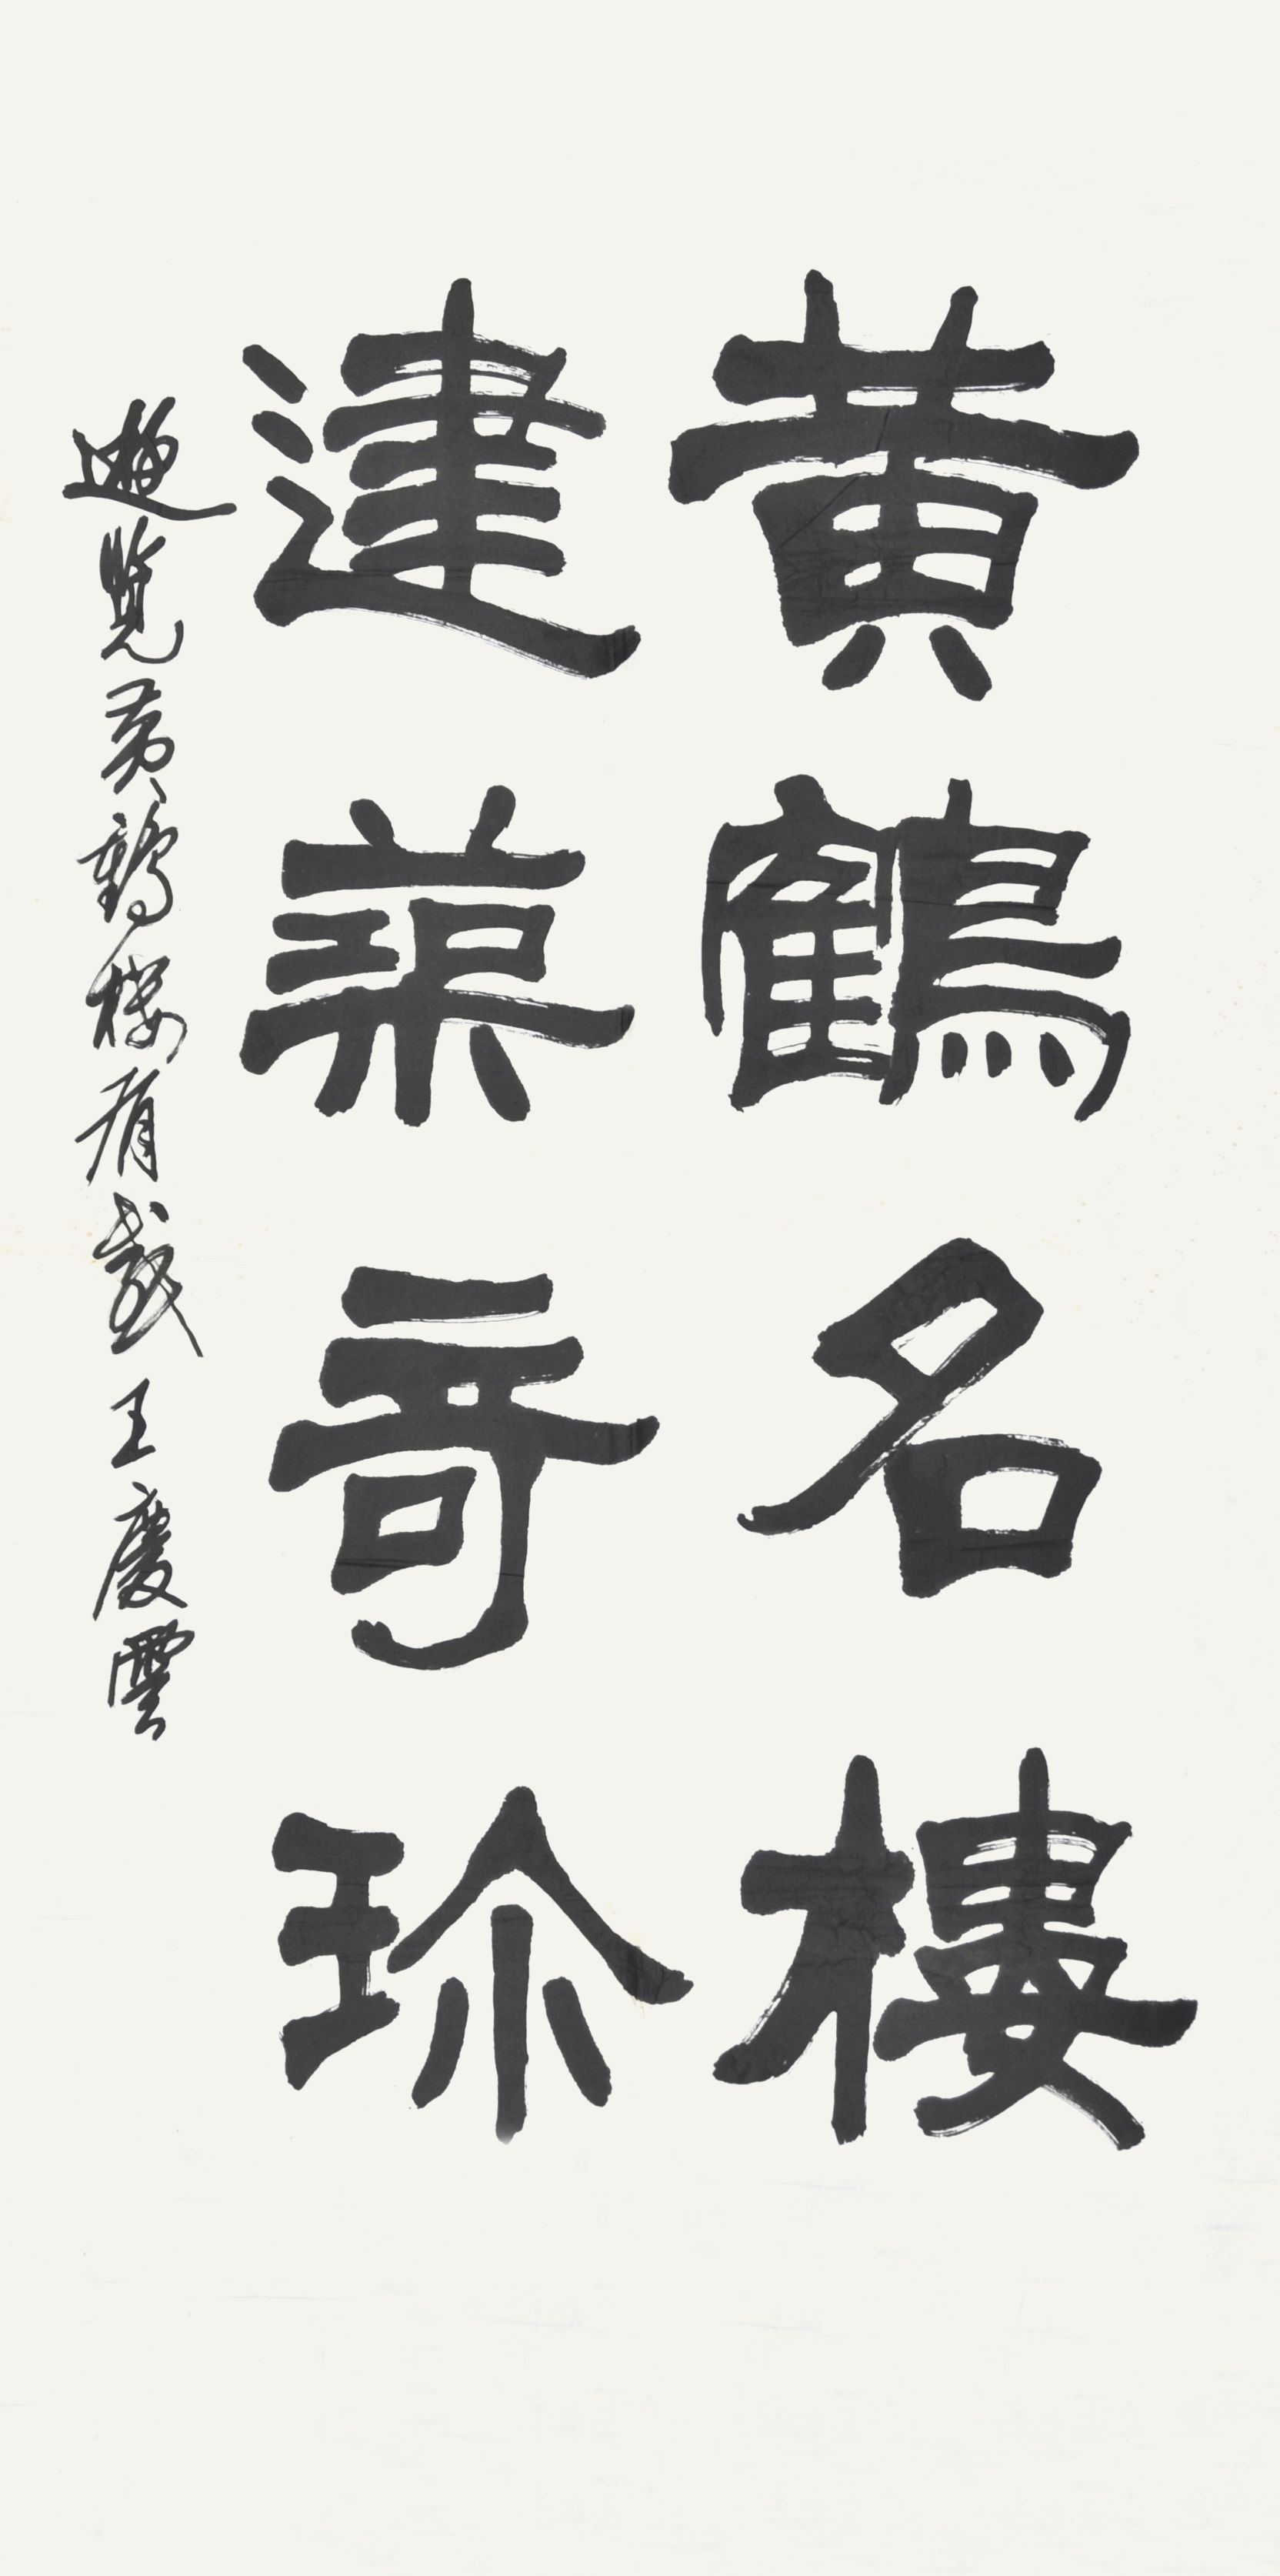 黄鶴名樓
建築奇珍
遊覽黄鶴樓有感 王慶雲